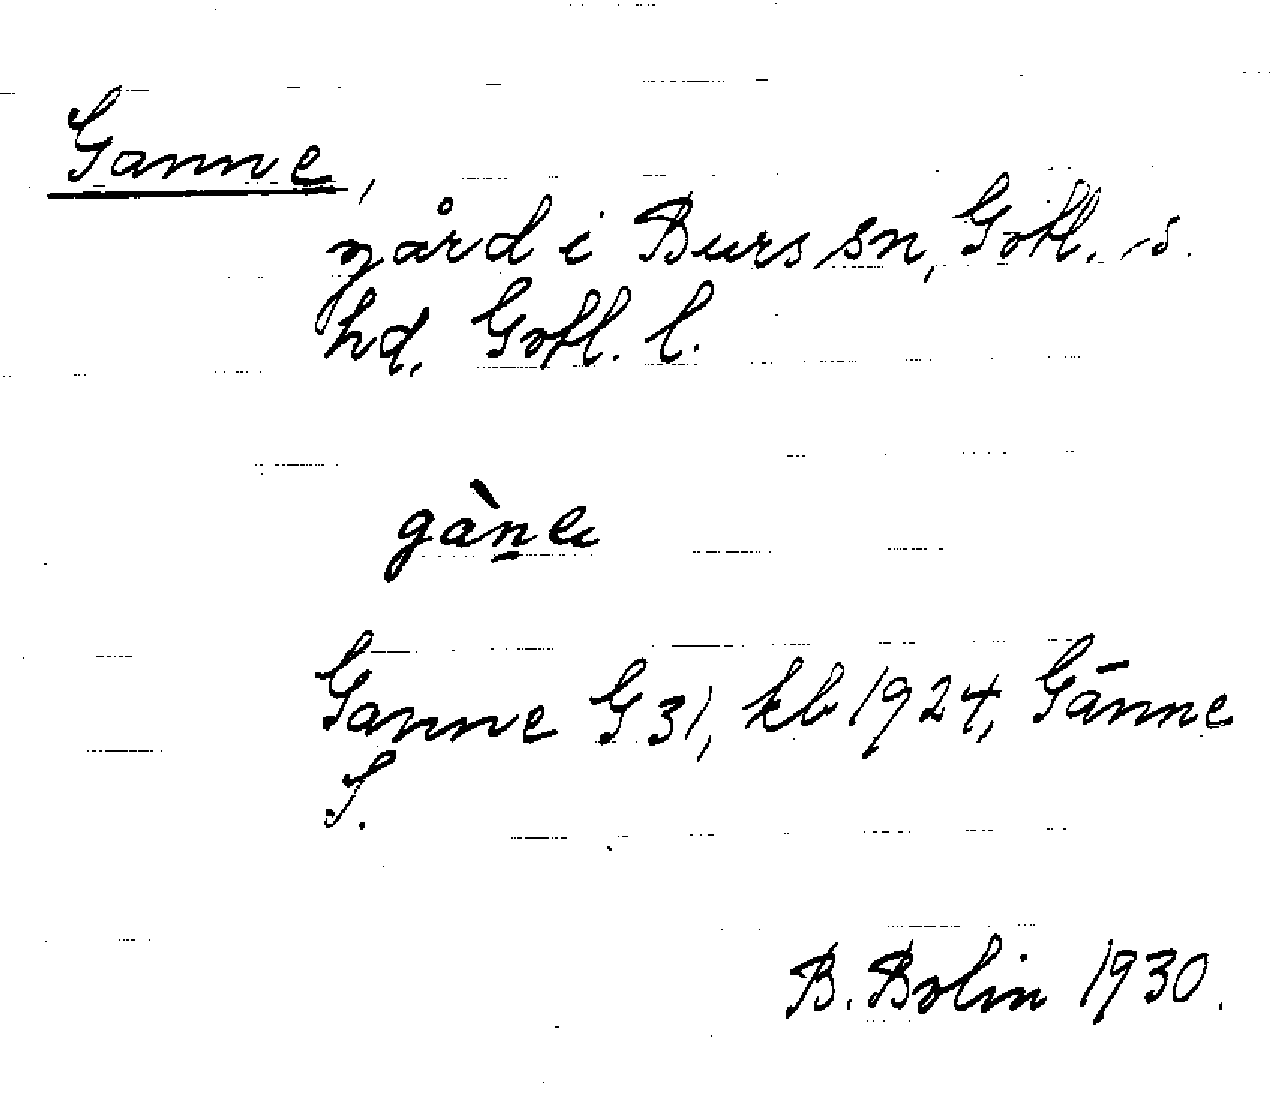 Ganne,
gård i Burs sn, Gotl. s.
hd, Gotl. l.
gàn̲e
Ganne G 31, kb 1924, Gānne
S.
B. Bolin 1930.